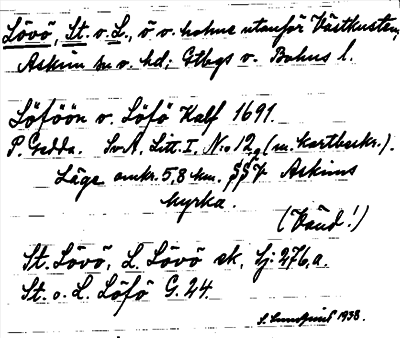 Lövö, St. o. L., ö o. holme utanför Västkusten,
Askim sn o. hd; Gtbgs o. Bohus l.
Löföön o. Löfö Kalf 1691.
P. Gedda. SvA. Litt. I. No 12 (m. kartbeskr.).
Läge omkr. 5,8 km. SSV Askims
kyrka.
(Vänd!)
St. Lövö, L. Lövö sk. Gj: 276,a.
St. o. L. Löfö G. 24.
1938.